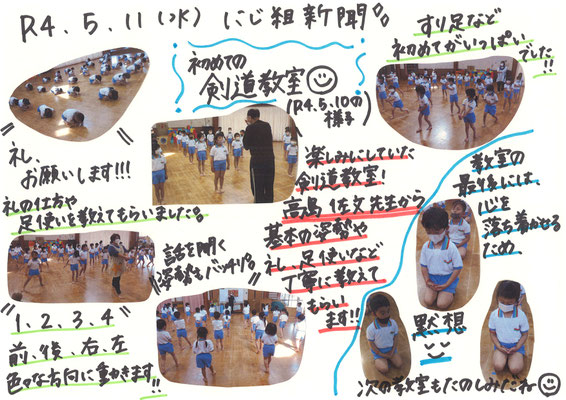 R4.5.11(水) にじ組新聞。
初めての
剣道教室
(R4.5.10の
様子)
すり足など
初めてがいっぱい
でした!!
礼、
お願いします!!!
礼の仕方や
足使いを教えてもらいました。
楽しみにしていた
剣道教室!
高島 佐文先生から
基本の姿勢や
礼、足使いなど
丁寧に教えて
もらい
ます!!
話を聞く
姿勢もバッチリ。
1、2、3、4
前、後、右、左
色々な方向に動きます!!
教室の
最後には、
心を
落ち着かせる
ため、
黙想
次の教室もたのしみだね